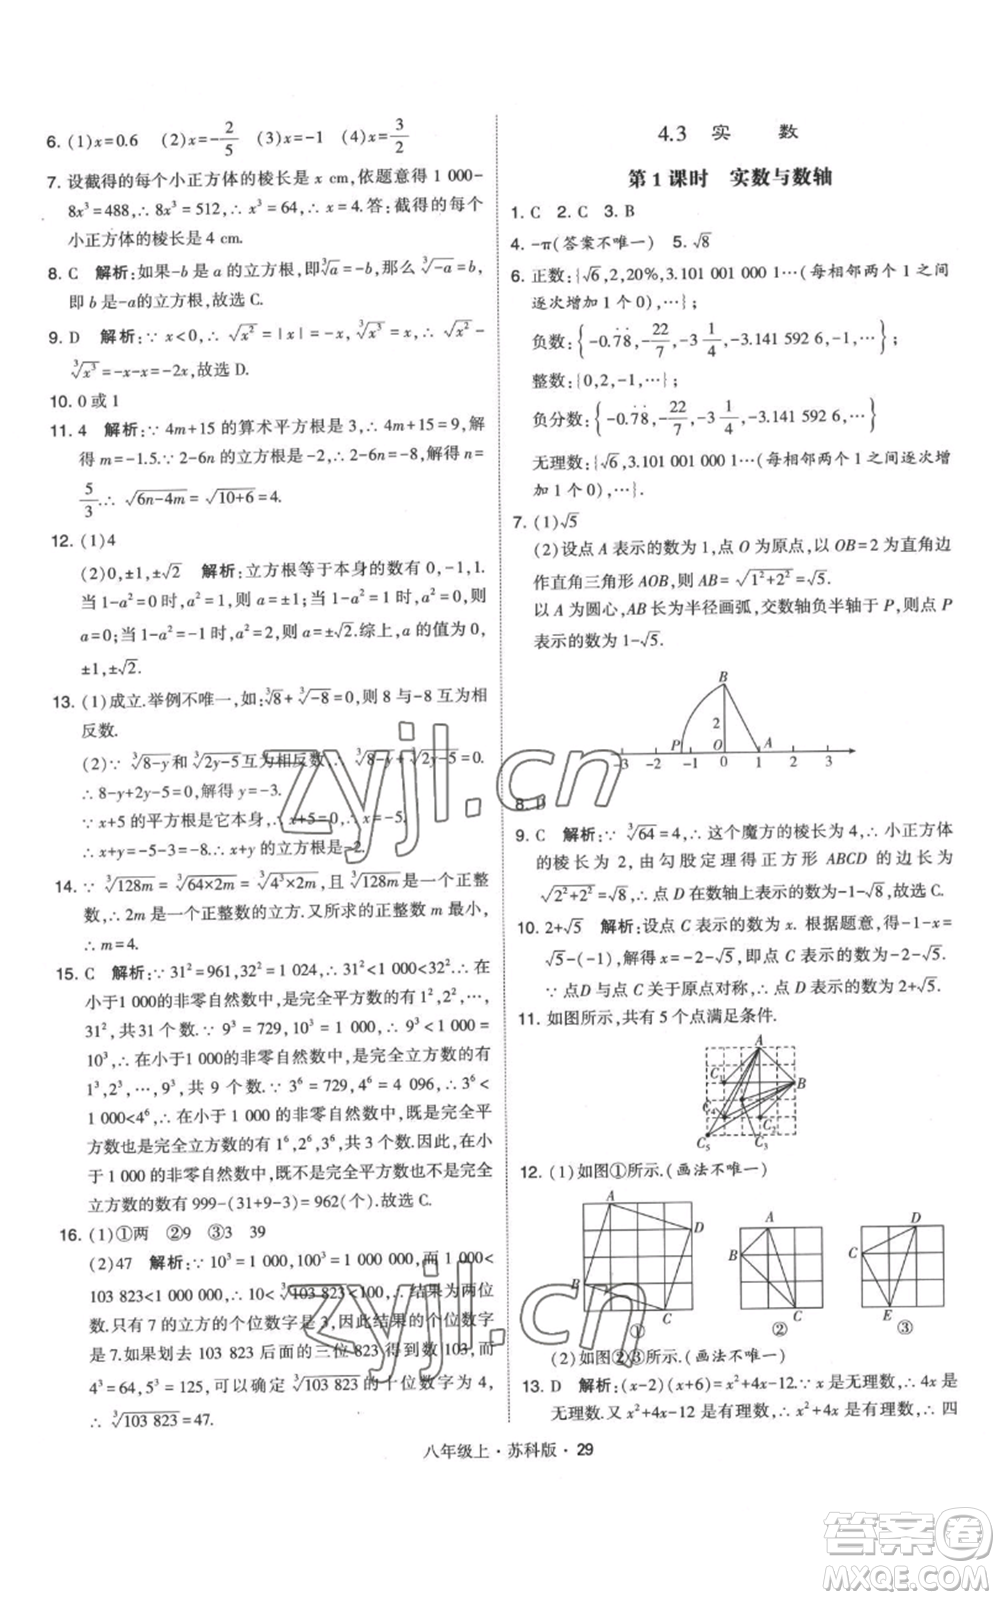 6. (1)x=0.6 (2)x=-2/5 (3)x=-1 (4)x=3/2
7. 设截得的每个小正方体的棱长是 x cm,依题意得 1 000-
8x³=488,∴8x³=512,∴x³=64,∴x=4.答:截得的每个
小正方体的棱长是 4 cm.
8. C 解析:如果-b 是 a 的立方根,即∛a=-b,那么∛-a=b,
即 b 是-a的立方根,故选 C.
9. D 解析:∵x<0,∴√x²=|x|=-x,∛x³=x,∴√x²-
∛x³=-x-x=-2x,故选 D.
10. 0 或 1
11. 4 解析:∵4m+15 的算术平方根是 3,∴4m+15=9,解
得 m=-1.5.∵2-6n 的立方根是-2,∴2-6n=-8,解得 n=
5/3.∴√6n-4m=√10+6=4.
12. (1)4
(2)0,±1,±√2 解析:立方根等于本身的数有 0,-1,1.
当 1-a²=0 时,a²=1,则 a=±1;当 1-a²=1 时,a²=0,则
a=0;当 1-a²=-1 时,a²=2,则 a=±√2.综上,a 的值为 0,
±1,±√2.
13. (1)成立.举例不唯一,如:∛8+∛-8=0,则 8 与-8 互为相
反数.
(2)∵∛8-y和∛2y-5互为相反数,∴∛8-y+∛2y-5=0.
∴8-y+2y-5=0,解得 y=-3.
∵x+5 的平方根是它本身,∴x+5=0,∴x=-5.
∴x+y=-5-3=-8,∴x+y 的立方根是-2.
14. ∵∛128m=∛64×2m=∛4³×2m,且∛128m是一个正整
数,∴2m 是一个正整数的立方.又所求的正整数 m 最小,
∴m=4.
15. C 解析:∵31²=961,32²=1 024,∴31²<1 000<32².∴在
小于1 000的非零自然数中,是完全平方数的有 1²,2²,…,
31²,共 31 个数.∵9³=729,10³=1 000,∴9³<1 000=
10³,∴在小于1 000的非零自然数中,是完全立方数的有
1³,2³,…,9³,共 9 个数.∵3⁶=729,4⁶=4 096,∴3⁶<
1 000<4⁶,∴在小于 1 000 的非零自然数中,既是完全平
方数也是完全立方数的有 1⁶,2⁶,3⁶,共 3 个数.因此,在小
于 1 000 的非零自然数中,既不是完全平方数也不是完全
立方数的数有 999-(31+9-3)=962(个).故选 C.
16. (1)①两 ②9 ③3 39
(2)47 解析:∵10³=1 000,100³=1 000 000,而 1 000<
103 823<1 000 000,∴10<∛103 823<100,∴结果为两位
数.只有 7 的立方的个位数字是 3,因此结果的个位数字
是7.如果划去 103 823 后面的三位 823 得到数 103,而
4³=64,5³=125,可以确定∛103 823的十位数字为 4,
∴∛103 823=47.
4.3 实 数
第 1 课时 实数与数轴
1. C 2. C 3. B
4. -π(答案不唯一) 5. √8
6. 正数:{√6,2,20%,3.101 001 000 1…(每相邻两个 1 之间
逐次增加 1 个 0),…};
负数:{-0.7̇8̇,-22/7,-3 1/4,-3.141 592 6,…};
整数:{0,2,-1,…};
负分数:{-0.7̇8̇,-22/7,-3 1/4,-3.141 592 6,…}
无理数:{√6,3.101 001 000 1…(每相邻两个 1 之间逐次增
加 1 个 0),…}.
7. (1)√5
(2)设点 A 表示的数为 1,点 O 为原点,以 OB=2 为直角边
作直角三角形 AOB,则 AB=√1²+2²=√5.
以 A 为圆心,AB 长为半径画弧,交数轴负半轴于 P,则点 P
表示的数为 1-√5.
B
2
P O A
-3 -2 -1 1 2 3
8. D
9. C 解析:∵∛64=4,∴这个魔方的棱长为 4,∴小正方体
的棱长为 2,由勾股定理得正方形 ABCD 的边长为
√2²+2²=√8,∴点 D 在数轴上表示的数为-1-√8,故选 C.
10. 2+√5 解析:设点 C 表示的数为 x. 根据题意,得-1-x=
√5-(-1),解得 x=-2-√5,∴点 C 表示的数为-2-√5.
∵点D与点 C 关于原点对称,∴点 D 表示的数为 2+√5.
11. 如图所示,共有 5 个点满足条件.
A
C₁ B
C₄ C₂
C₅ C₃
12. (1)如图①所示.(画法不唯一)
A D B C ①
A B C ②
D C E ③
(2)如图②③所示.(画法不唯一)
13. D 解析:(x-2)(x+6)=x²+4x-12.∵x²是无理数,4x 是
无理数.又 x²+4x-12 是有理数,∴x²+4x 是有理数,∴四
八年级上·苏科版·29
zyjl.cn
答案卷